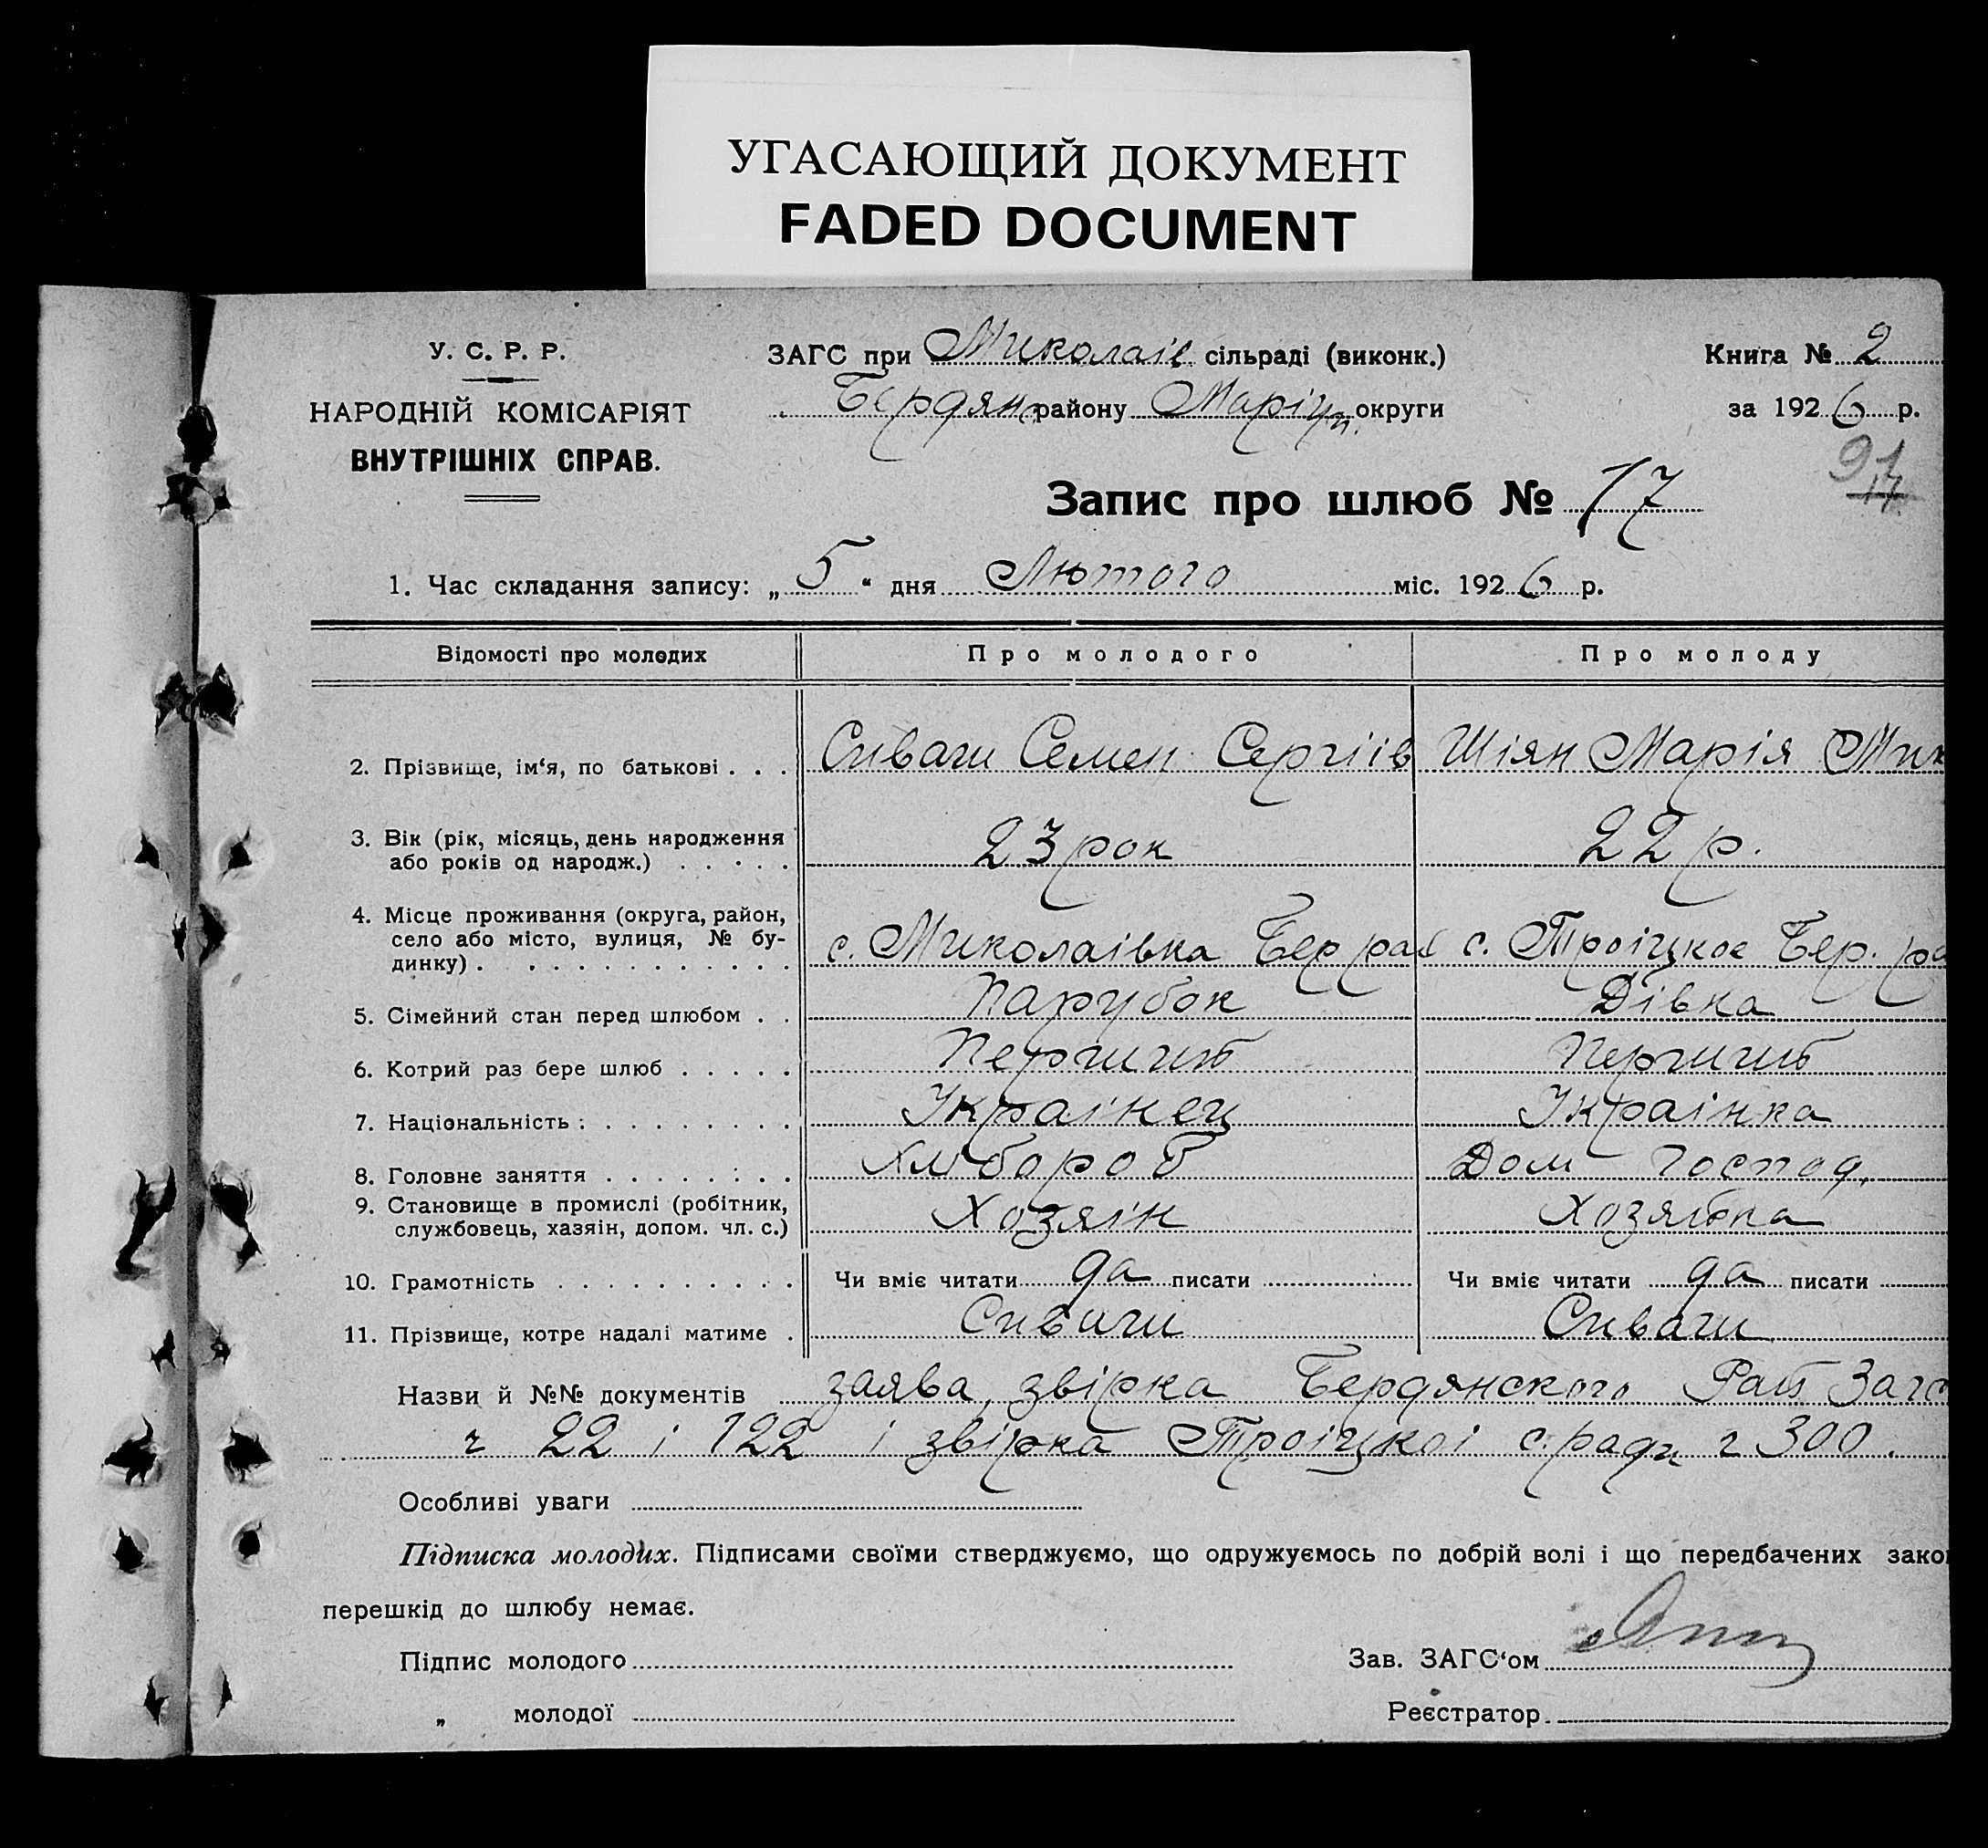 УГАСАЮЩИЙ ДОКУМЕНТ
FADED DOCUMENT
У. С. Р. Р.
НАРОДНІЙ КОМІСАРІЯТ
ВНУТРІШНІХ СПРАВ.
ЗАГС при Миколаів сільраді (виконк.)
Бердянс району Маріуп. округи
Книга № 2
за 1926 р.
91
17
Запис про шлюб № 17
1. Час складання запису: „5“ дня Лютого міс. 1926 р.
Відомості про молодих Про молодого Про молоду
2. Прізвище, ім‘я, по батькові . . . Сиваш Семен Сергіів Шіян Марія Мик
3. Вік (рік, місяць, день народження
або років од народж.) . . . . . 23 рок 22 р.
4. Місце проживання (округа, район,
село або місто, вулиця, № бу-
динку) . . . . . . . . . . . . с. Миколаівка Бер рай с. Троіцкое Бер. ра
5. Сімейний стан перед шлюбом . . Парубок Дівка
6. Котрий раз бере шлюб . . . . . Перший Перший
7. Національність : . . . . . . . . Украінец Украінка
8. Головне заняття . . . . . . . . Хлібороб Дом господ.
9. Становище в промислі (робітник,
службовець, хазяін, допом. чл. с.) Хозяін Хозяйка
10. Грамотність . . . . . . . . . . Чи вміє читати да писати Чи вміє читати да писати
11. Прізвище, котре надалі матиме . Сиваш Сиваш
Назви й №№ документів заява, звірка Бердянского Рай Загс
ч 22 і 122 і звірка Троіцкоі с.ради ч 300.
Особливі уваги
Підписка молодих. Підписами своїми стверджуємо, що одружуємось по добрій волі і що передбачених зако
перешкід до шлюбу немає.
Підпис молодого Зав. ЗАГС‘ом
„ молодої Реєстратор